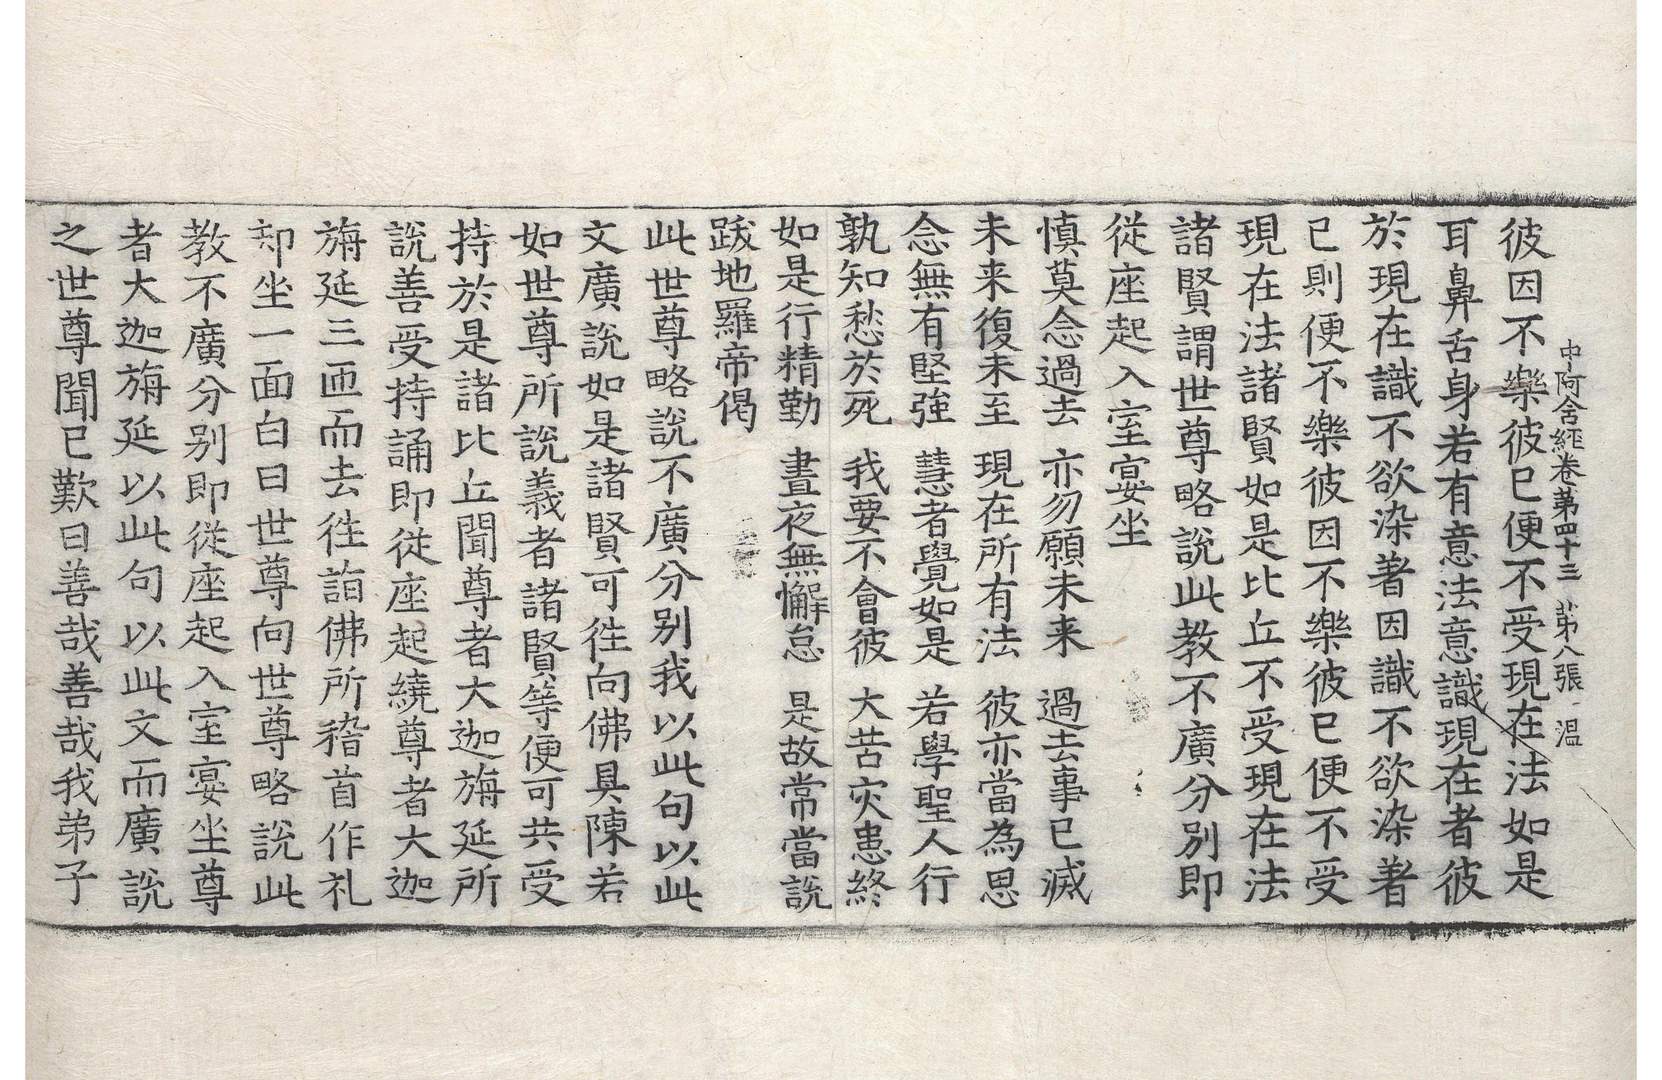 中阿含經卷第四十三 第八張 温
彼因不樂彼已便不受現在法如是
耳鼻舌身若有意法意識現在者彼
於現在識不欲染著因識不欲染著
已則便不樂彼因不樂彼已便不受
現在法諸賢如是比丘不受現在法
諸賢謂世尊略說此教不廣分別即
從座起入室宴坐
慎莫念過去 亦勿願未来 過去事已滅
未来復未至 現在所有法 彼亦當為思
念無有堅強 慧者覺如是 若學聖人行
孰知愁於死 我要不會彼 大苦灾患終
如是行精勤 晝夜無懈怠 是故常當說
跋地羅帝偈
此世尊略說不廣分別我以此句以此
文廣說如是諸賢可徃向佛具陳若
如世尊所說義者諸賢等便可共受
持於是諸比丘聞尊者大迦旃延所
說善受持誦即從座起繞尊者大迦
旃延三匝而去徃詣佛所稽首作礼
却坐一面白曰世尊向世尊略說此
教不廣分別即從座起入室宴坐尊
者大迦旃延以此句以此文而廣說
之世尊聞已歎曰善哉善哉我弟子